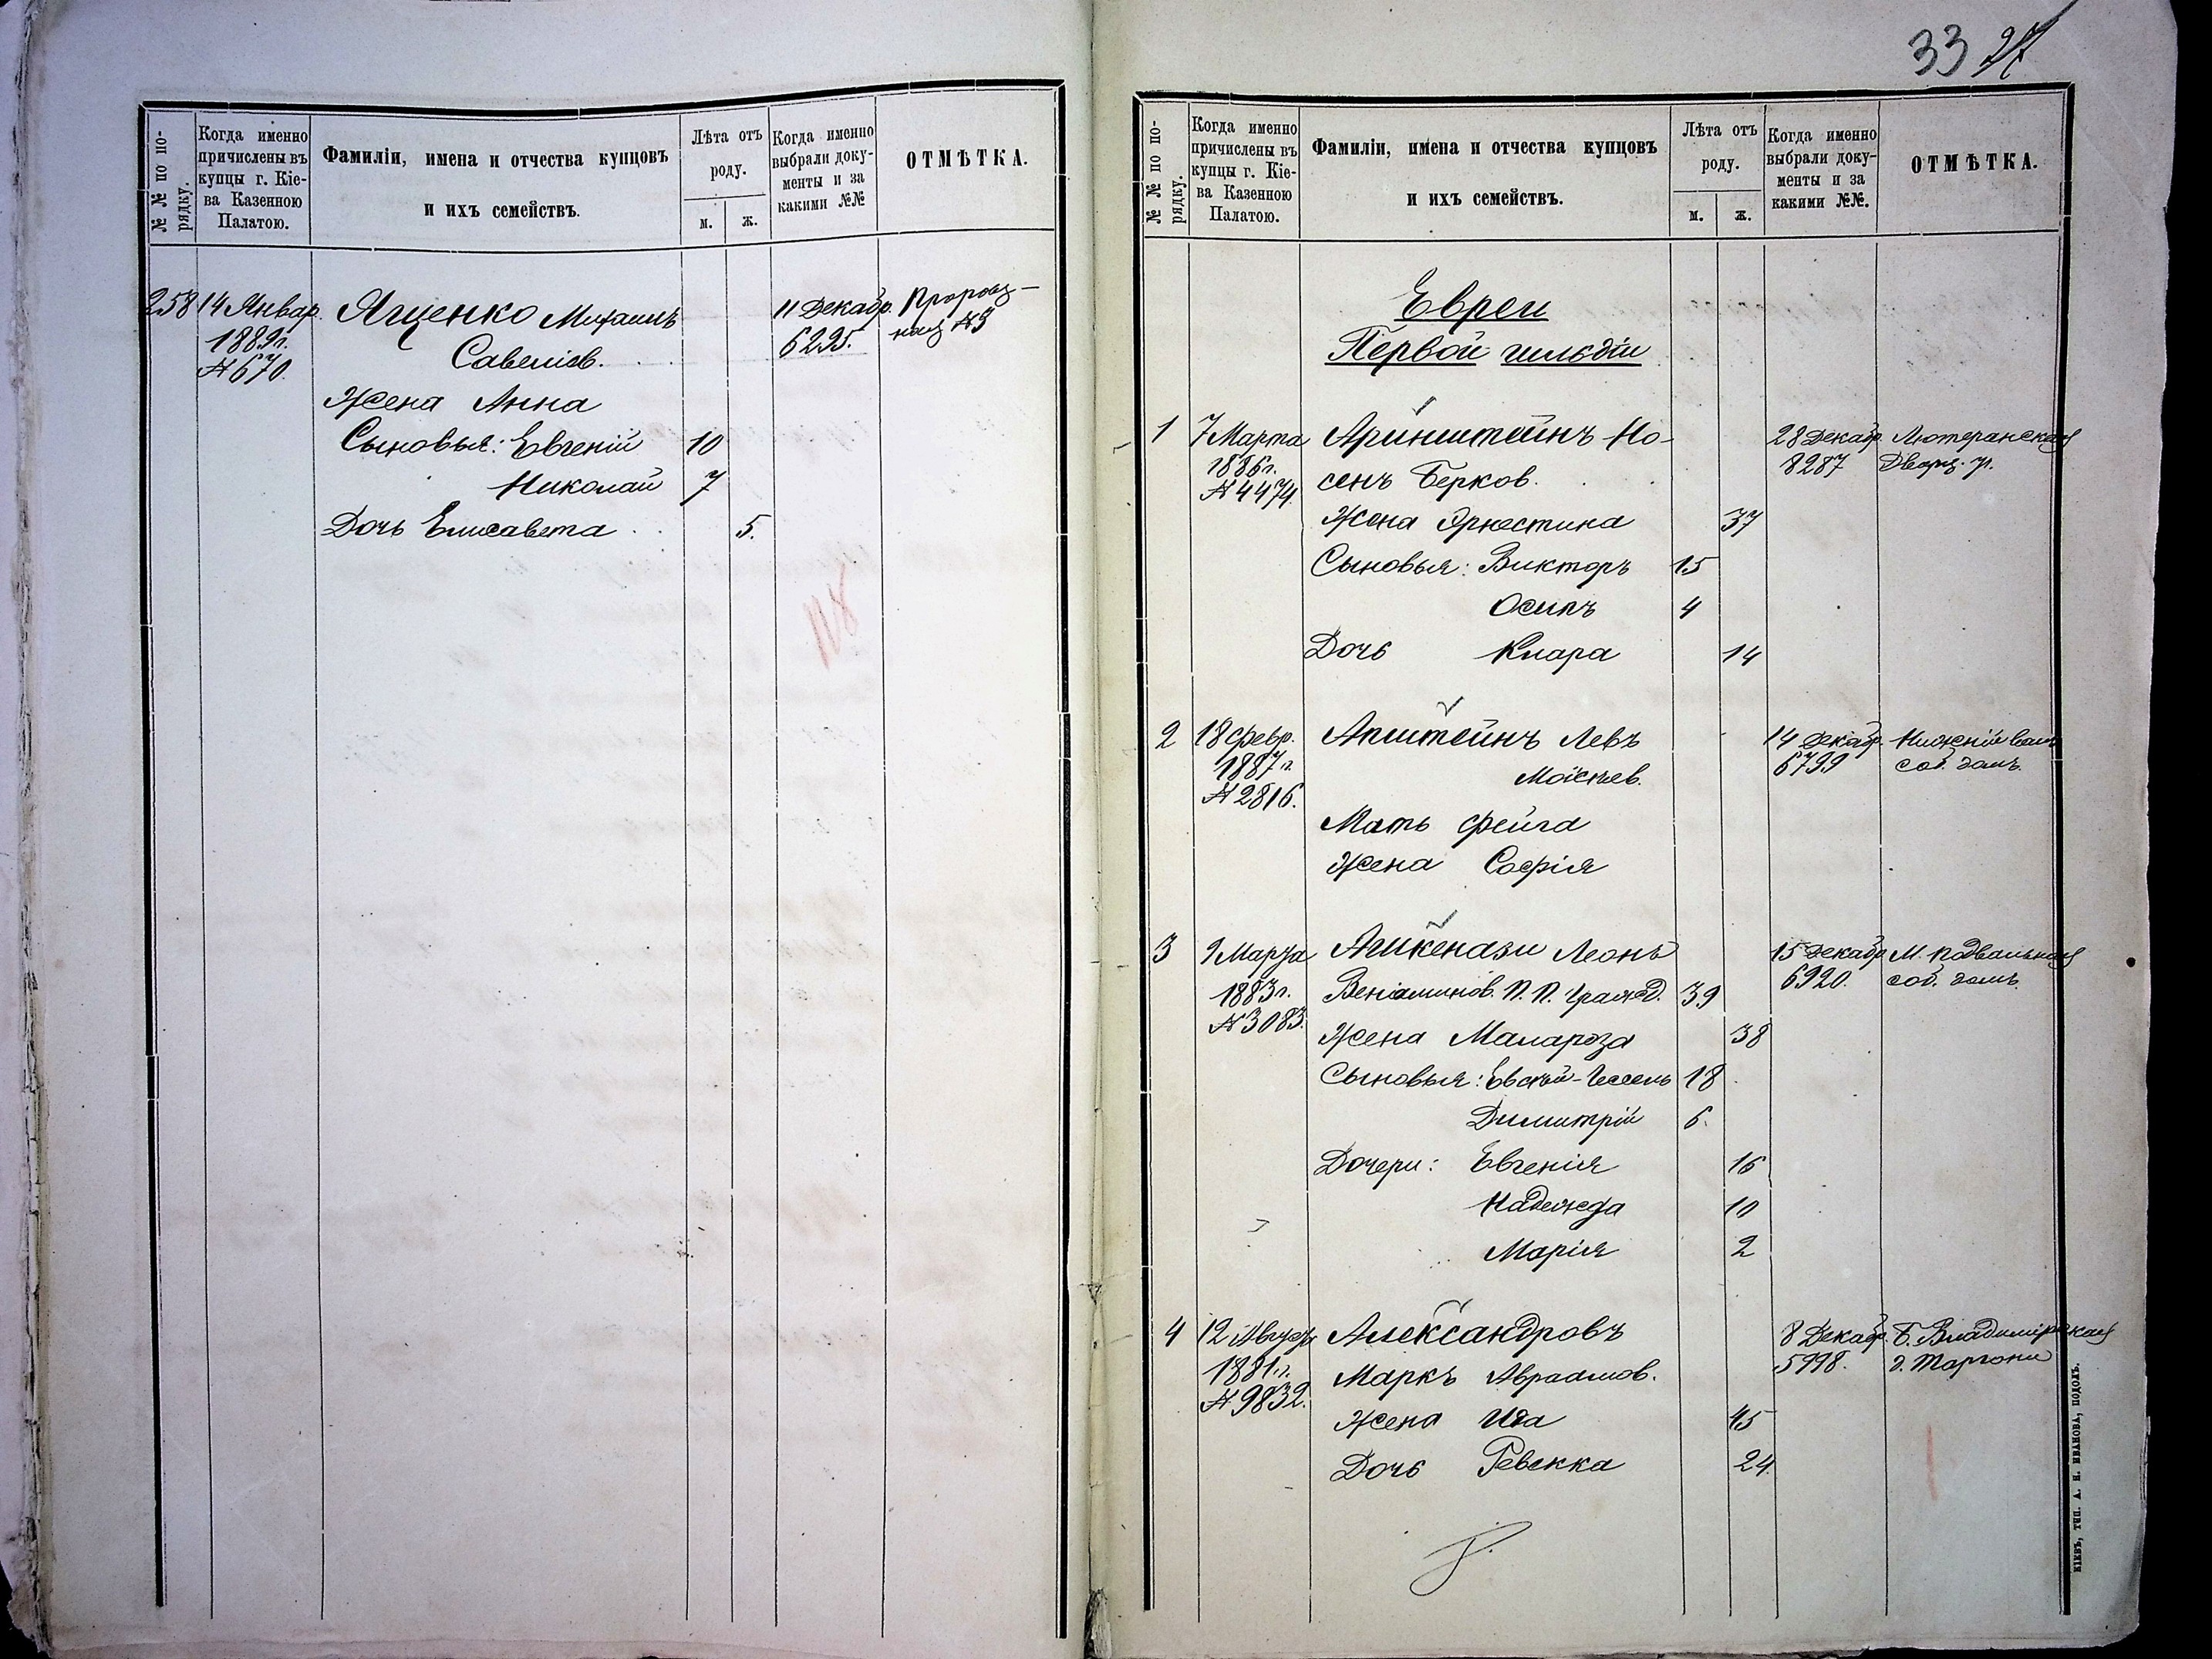 № № по по-
рядку.
Когда именно
причислены въ
купцы г. Кіе-
ва Казенною
Палатою.
Фамиліи, имена и отчества купцовъ
и ихъ семействъ.
Лѣта отъ
роду.
м. ж.
Когда именно
выбрали доку-
менты и за
какими №№
ОТМѢТКА.
258 14 Январ. Ященко Михаилъ 11 Декабр.
1889 г. Савеліев. 6295. №3
№ 670.
Жена Анна
Сыновья: Евгеній 10
Николай 7
Дочь Елисавета 5.
118
33 27
№ № по по-
рядку.
Когда именно
причислены въ
купцы г. Кіе-
ва Казенною
Палатою.
Фамиліи, имена и отчества купцовъ
и ихъ семействъ.
Лѣта отъ
роду.
м. ж.
Когда именно
выбрали доку-
менты и за
какими №№.
ОТМѢТКА.
Евреи
Первой гильдіи
1 7 Марта Аринштейнъ Но- 28 Декабр. Лютеранская
1886 г. сенъ Берков. 8287
№ 4474.
Жена Эрнестина 37
Сыновья: Викторъ 15
Осипъ 4
Дочь Клара 14
2 18 Февр. Апштейнъ Левъ 14 Декабр. Нижній валъ
1887 г. Моисѣев. 6799 соб. домъ.
№ 2816.
Мать Фейга
Жена Софія
3 9 Марта Ашкенази Леонъ 15 Декабр. М. Подвальная
1883 г. Веніаминов. П. П. Гражд. 39 6920. соб. домъ
№ 3083.
Жена Малароза 38
Сыновья: 18
Димитрій 6.
Дочери: Евгенія 16
Надежда 10
Марія 2
4 12 Август. Александровъ 8 Декабр. Б. Владимірская
1881 г. Маркъ Авраамов. 5998. д. Маргони
№ 9832.
Жена Ида 45
Дочь Ревекка 24.
КІЕВЪ, ТИП. А. Н. ИВАНОВА, ПОДОЛЪ.